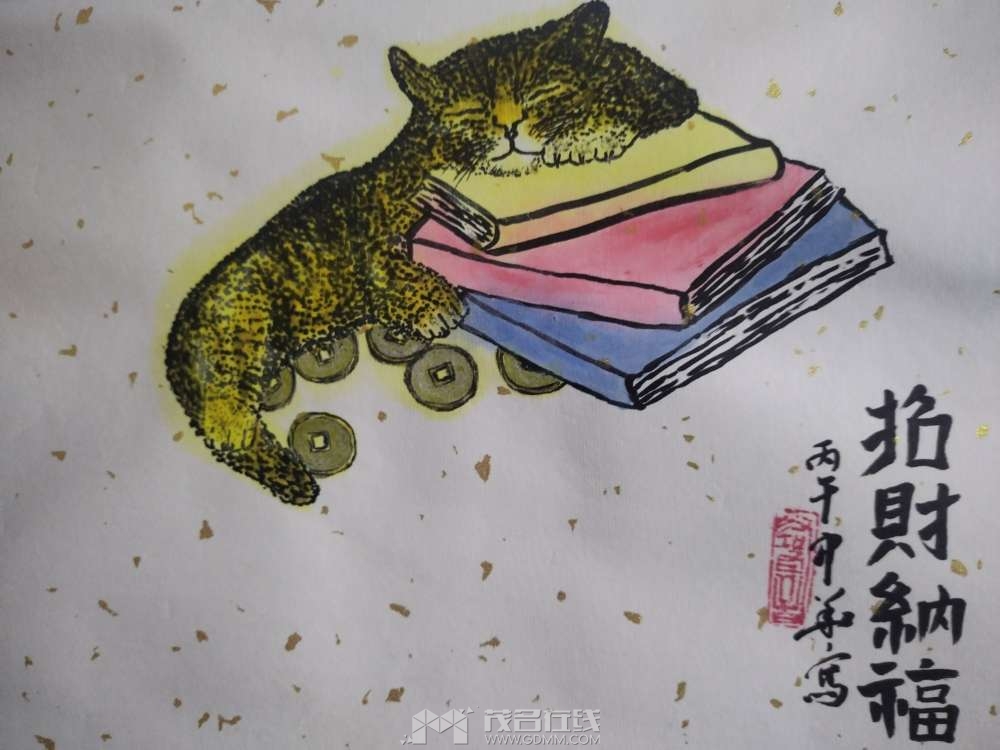 招財納福
丙午中華寫
茂名在线
WWW.GDMM.COM